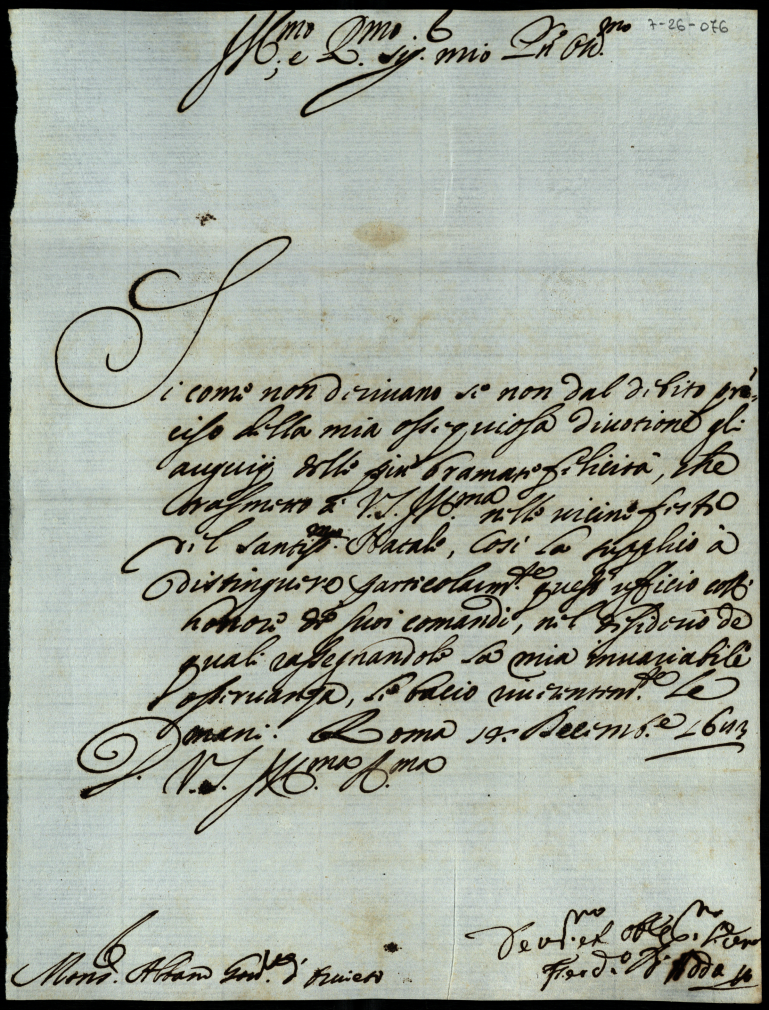 7-26-076
Ill.mo e R.mo Sig.r mio P.ne Oss.mo
Si come non derivano se non dal debito pre=
ciso della mia ossequiosa divotione gli
augurij delle più bramate felicità, che
trasmetto à V.S. Ill.ma nelle vicine feste
del Santiss.mo Natale, così la supplico à
distinguere particolarm.te quest' ufficio coll'
honore de suoi comandi, nel desiderio de
quali rassegnandole la mia invariabile
osservanza, le bacio riverentem.te le
mani. Roma Decemb.e
D. V.S. Ill.ma R.ma
Dev.mo et Obl.mo Ser.re
Mons.r Albani Gov.re d' Orvieto
Ferd.o d' Adda